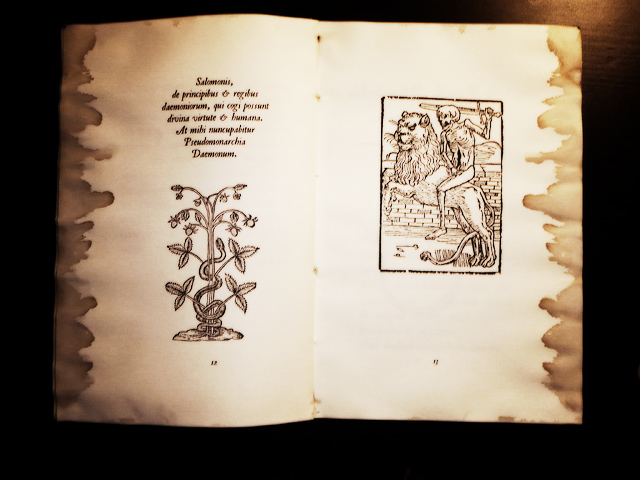 Salomonis,
de principibus & regibus
daemoniorum, qui cogi possunt
divina virtute & humana.
At mihi nuncupabitur
Pseudomonarchia
Daemonum.
12
13